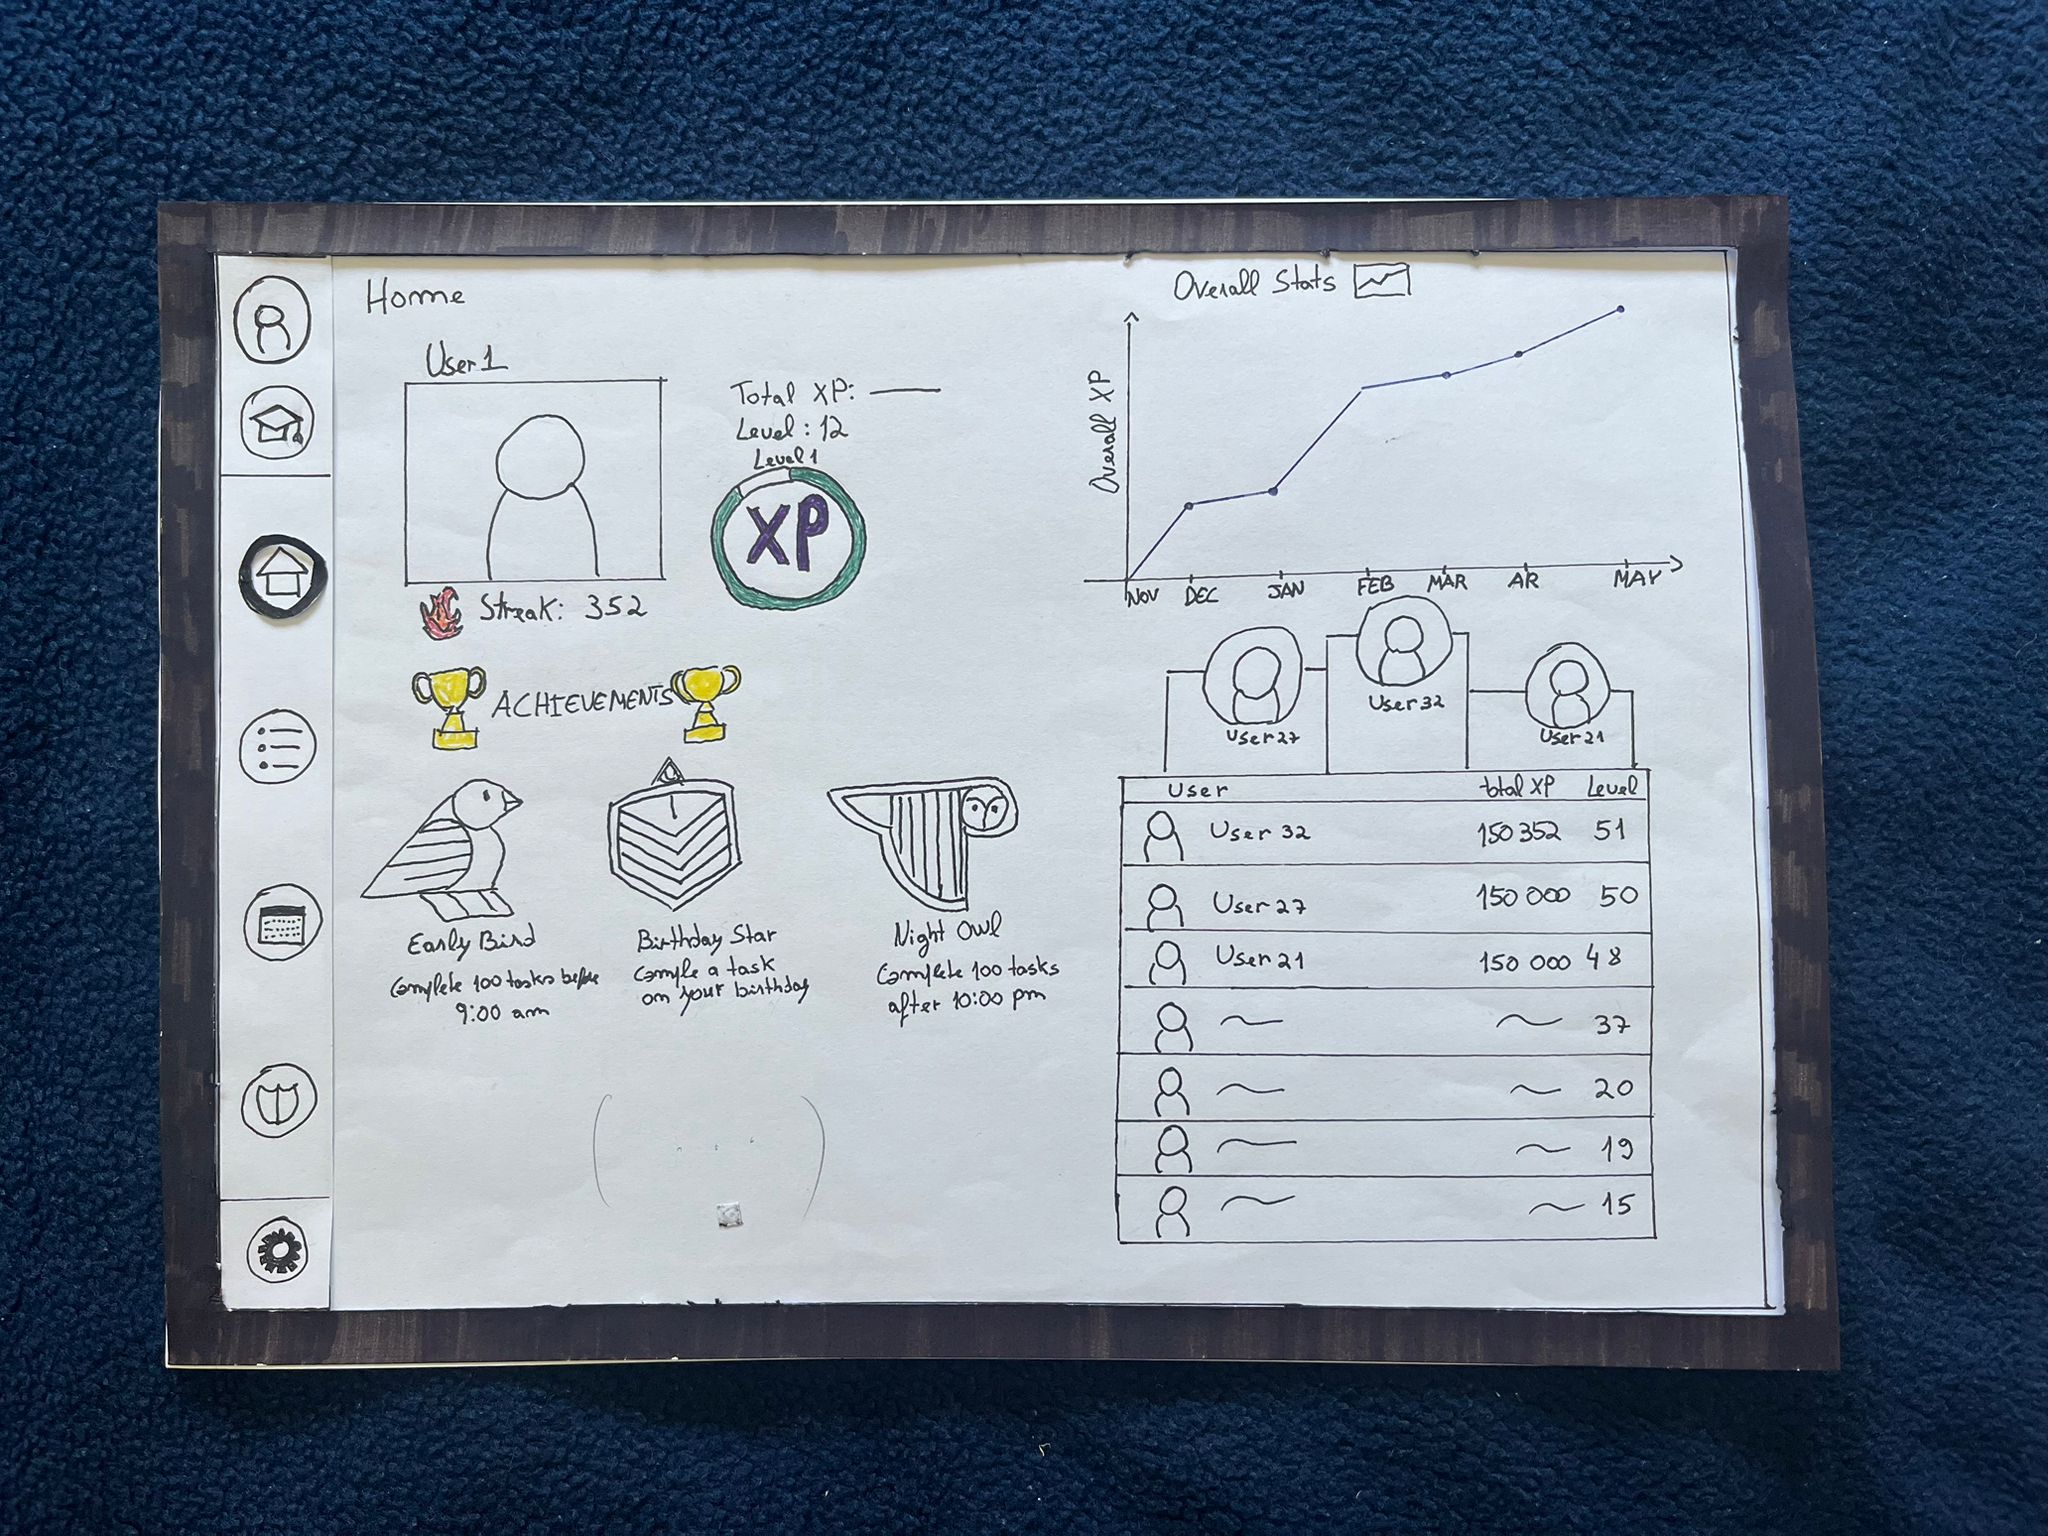 Home
User 1
Total XP:
Level : 12
Level 1
XP
Streak: 352
ACHIEVEMENTS
Early Bird
Complete 100 tasks before
9:00 am
Birthday Star
Comple a task
on your birthday
Night Owl
Complete 100 tasks
after 10:00 pm
Overall Stats
Overall XP
NOV DEC JAN FEB MAR AR MAY
User 27
User 32
User 21
User total XP Level
User 32 150 352 51
User 27 150 000 50
User 21 150 000 48
37
20
19
15